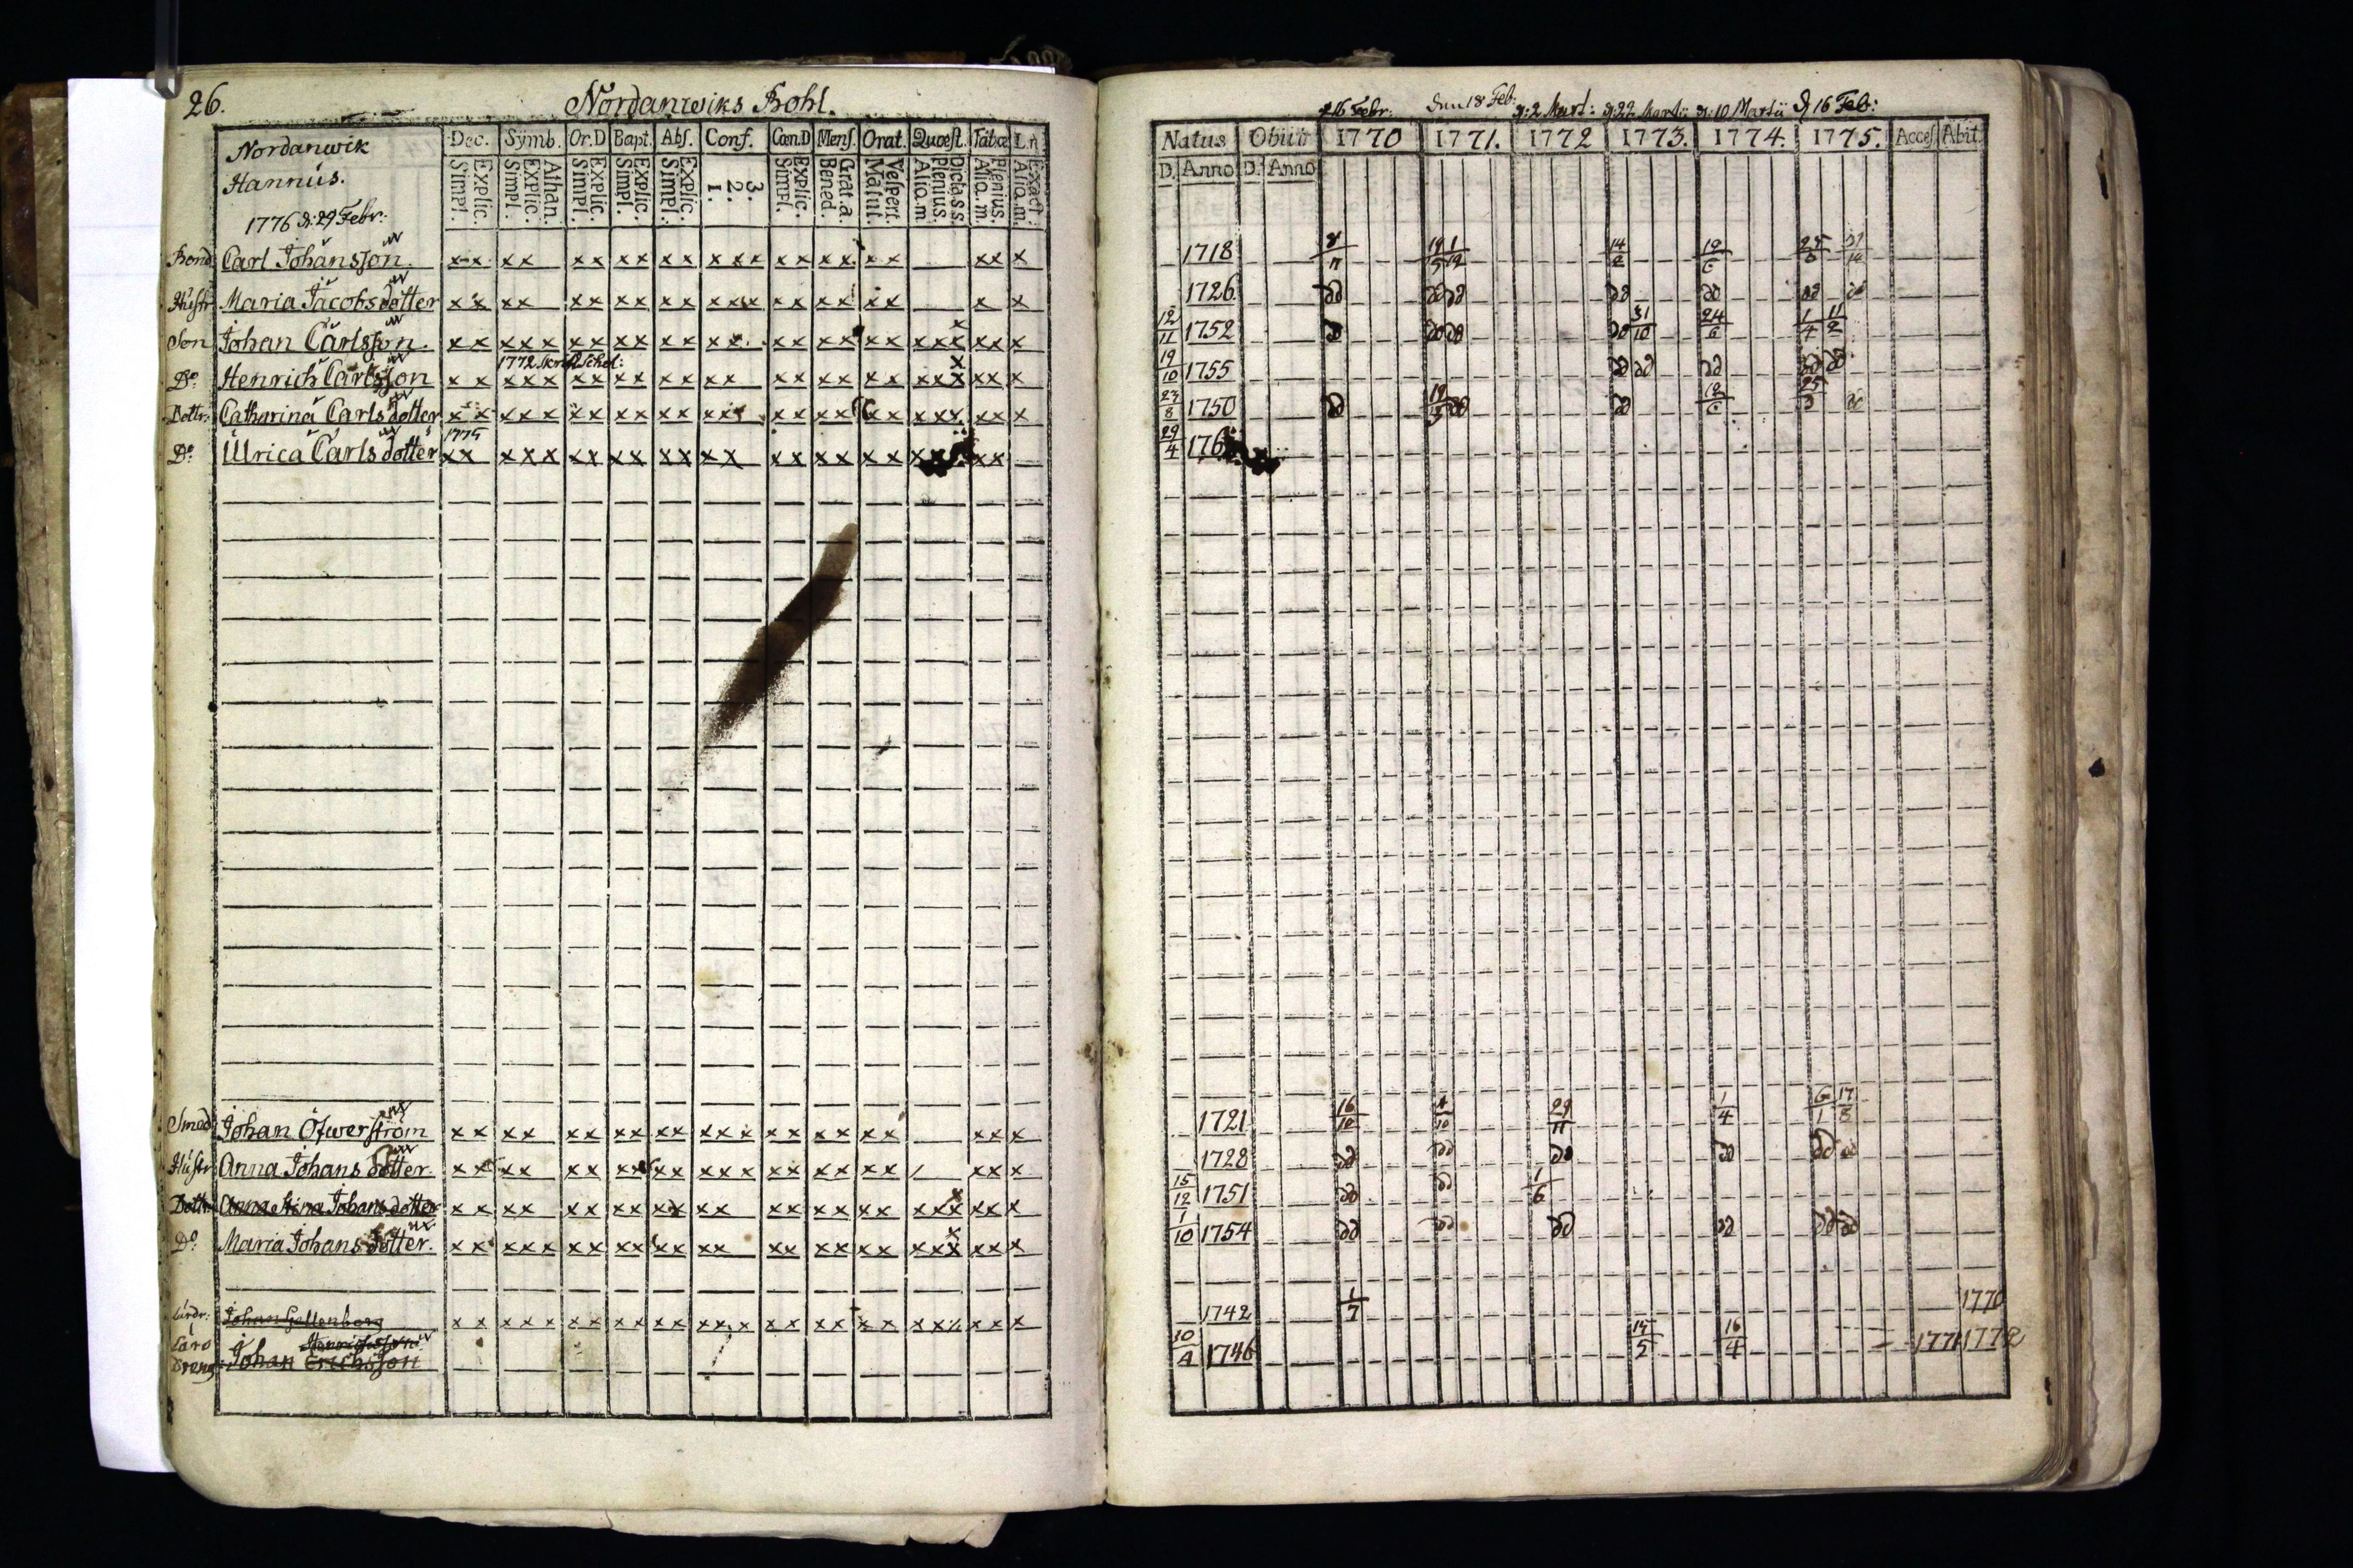 26. Nordanwiks Bohl.
Nordanwik
Hannus.
1776 d: 29 Febr:
Dec. Symb. Or.D Bapt. Abs. Conf. Cœn.D Mens. Orat. Quæst. Tabæ L.n
Simpl. Explic. Simpl. Explic. Athan. Simpl. Explic. Simpl. Explic. Simpl. Explic. 1. 2. 3. Simpl. Explic. Bened. Grat.a. Matut. Vespert. Aliq.m. Plenius. Dicta s.s. Aliq.m. Plenius. Aliq.m. Exact.
Bond Carl Johansson xx xx xx xx xx xxx xx xx xx xx x
Hustr Maria Jacobsdotter xx xx xx xx xx xxx xx xx xx x x
Son Johan Carlsson xx xx xx xx xx xx xx xx xx xxx xxx x
1772
Do Henrich Carlsson xx xxx xx xx xx xx xx xx xx xxx xx x
Dottr Catharina Carlsdotter xx xxx xx xx xx xx xx xx xx xxx xxx x
1775
Do Ulrica Carlsdotter xx xxx xx xx xx xx xx xx xx xx
Smed Johan Öfwerström xx xx xx xx xx xxx xx xx xx xxx x
Hustr Anna Johansdotter xx xx xx xx xx xxx xx xx xx xxx x
Dottr Anna Stina Johansdotter xx xx xx xx xx xx xx xx xx xxx xxx x
Do Maria Johansdotter xx xxx xx xx xx xx xx xx xx xxx xxx x
Johan Gallenberg xx xx xx xx xx xxx xx xx xx xxx xx x
Henricsson
Johan Erichsson
16 Febr: den 18 Feb: d: 2 Mart: d: 22 Martii d: 10 Martii d 16 Feb:
Natus Obiit 1770 1771. 1772 1773. 1774. 1775. Acces Abit.
D. Anno D. Anno
1718
1726 dd dd dd dd dd dd
12/11 1752 dd dd dd 31/10 24/6 1/4 11/2
19/10 1755 dd dd dd dd dd
23/8 1750 dd 19/5 dd dd
29/4 176
1721 16/10 29/11 1/4 6/1 17/8
1728 dd dd dd dd dd dd
15/12 1751 dd dd 1/6
1/10 1754 dd dd dd dd dd dd
1742 1/7 1770
10/4 1746 16/4 1771 1772